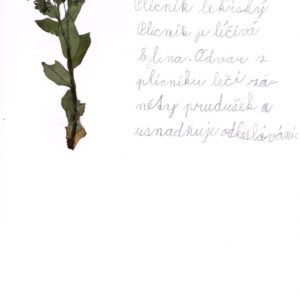 Plicník lékařský
Plicník je léčivá
bylina. Odvar z
plicníku léčí zá-
něty průdušek a
usnadňuje odkašlávání